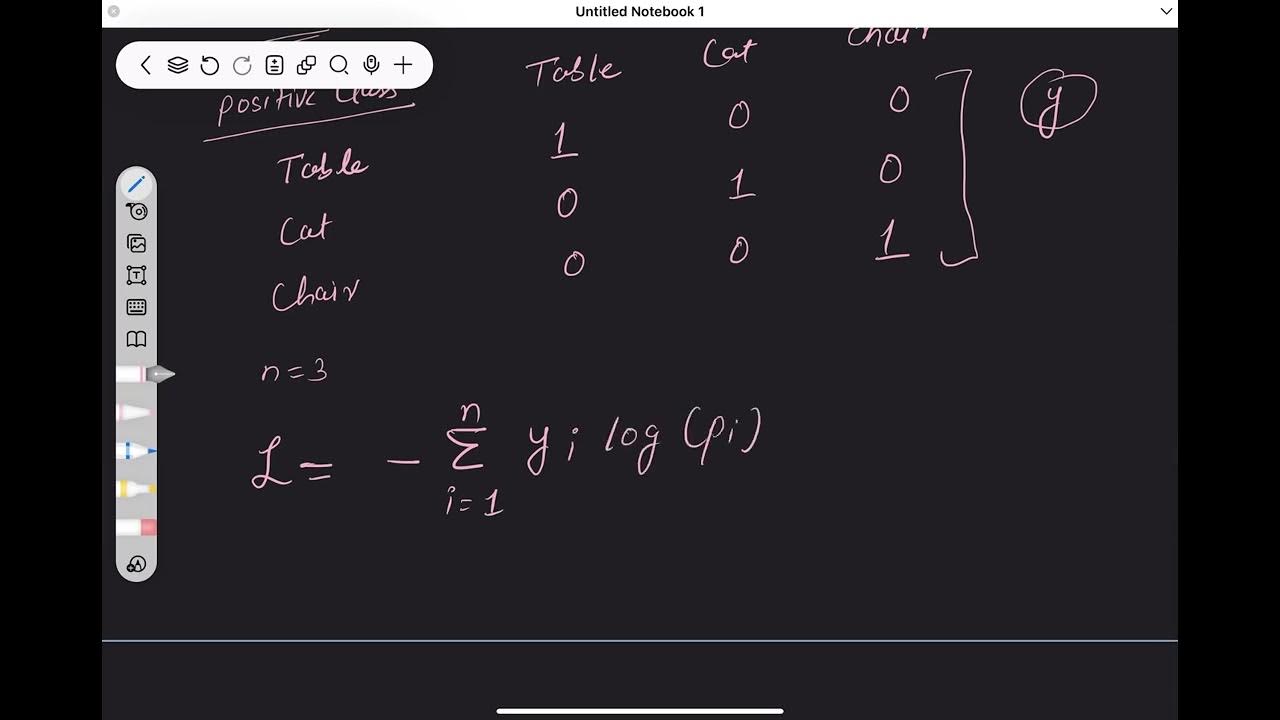 Untitled Notebook 1
Table Cat Chair
positive Class
1 0 0
Table
0 1 0
Cat
0 0 1
Chair
y
n=3
L = - n Σ i=1 yi log (pi)